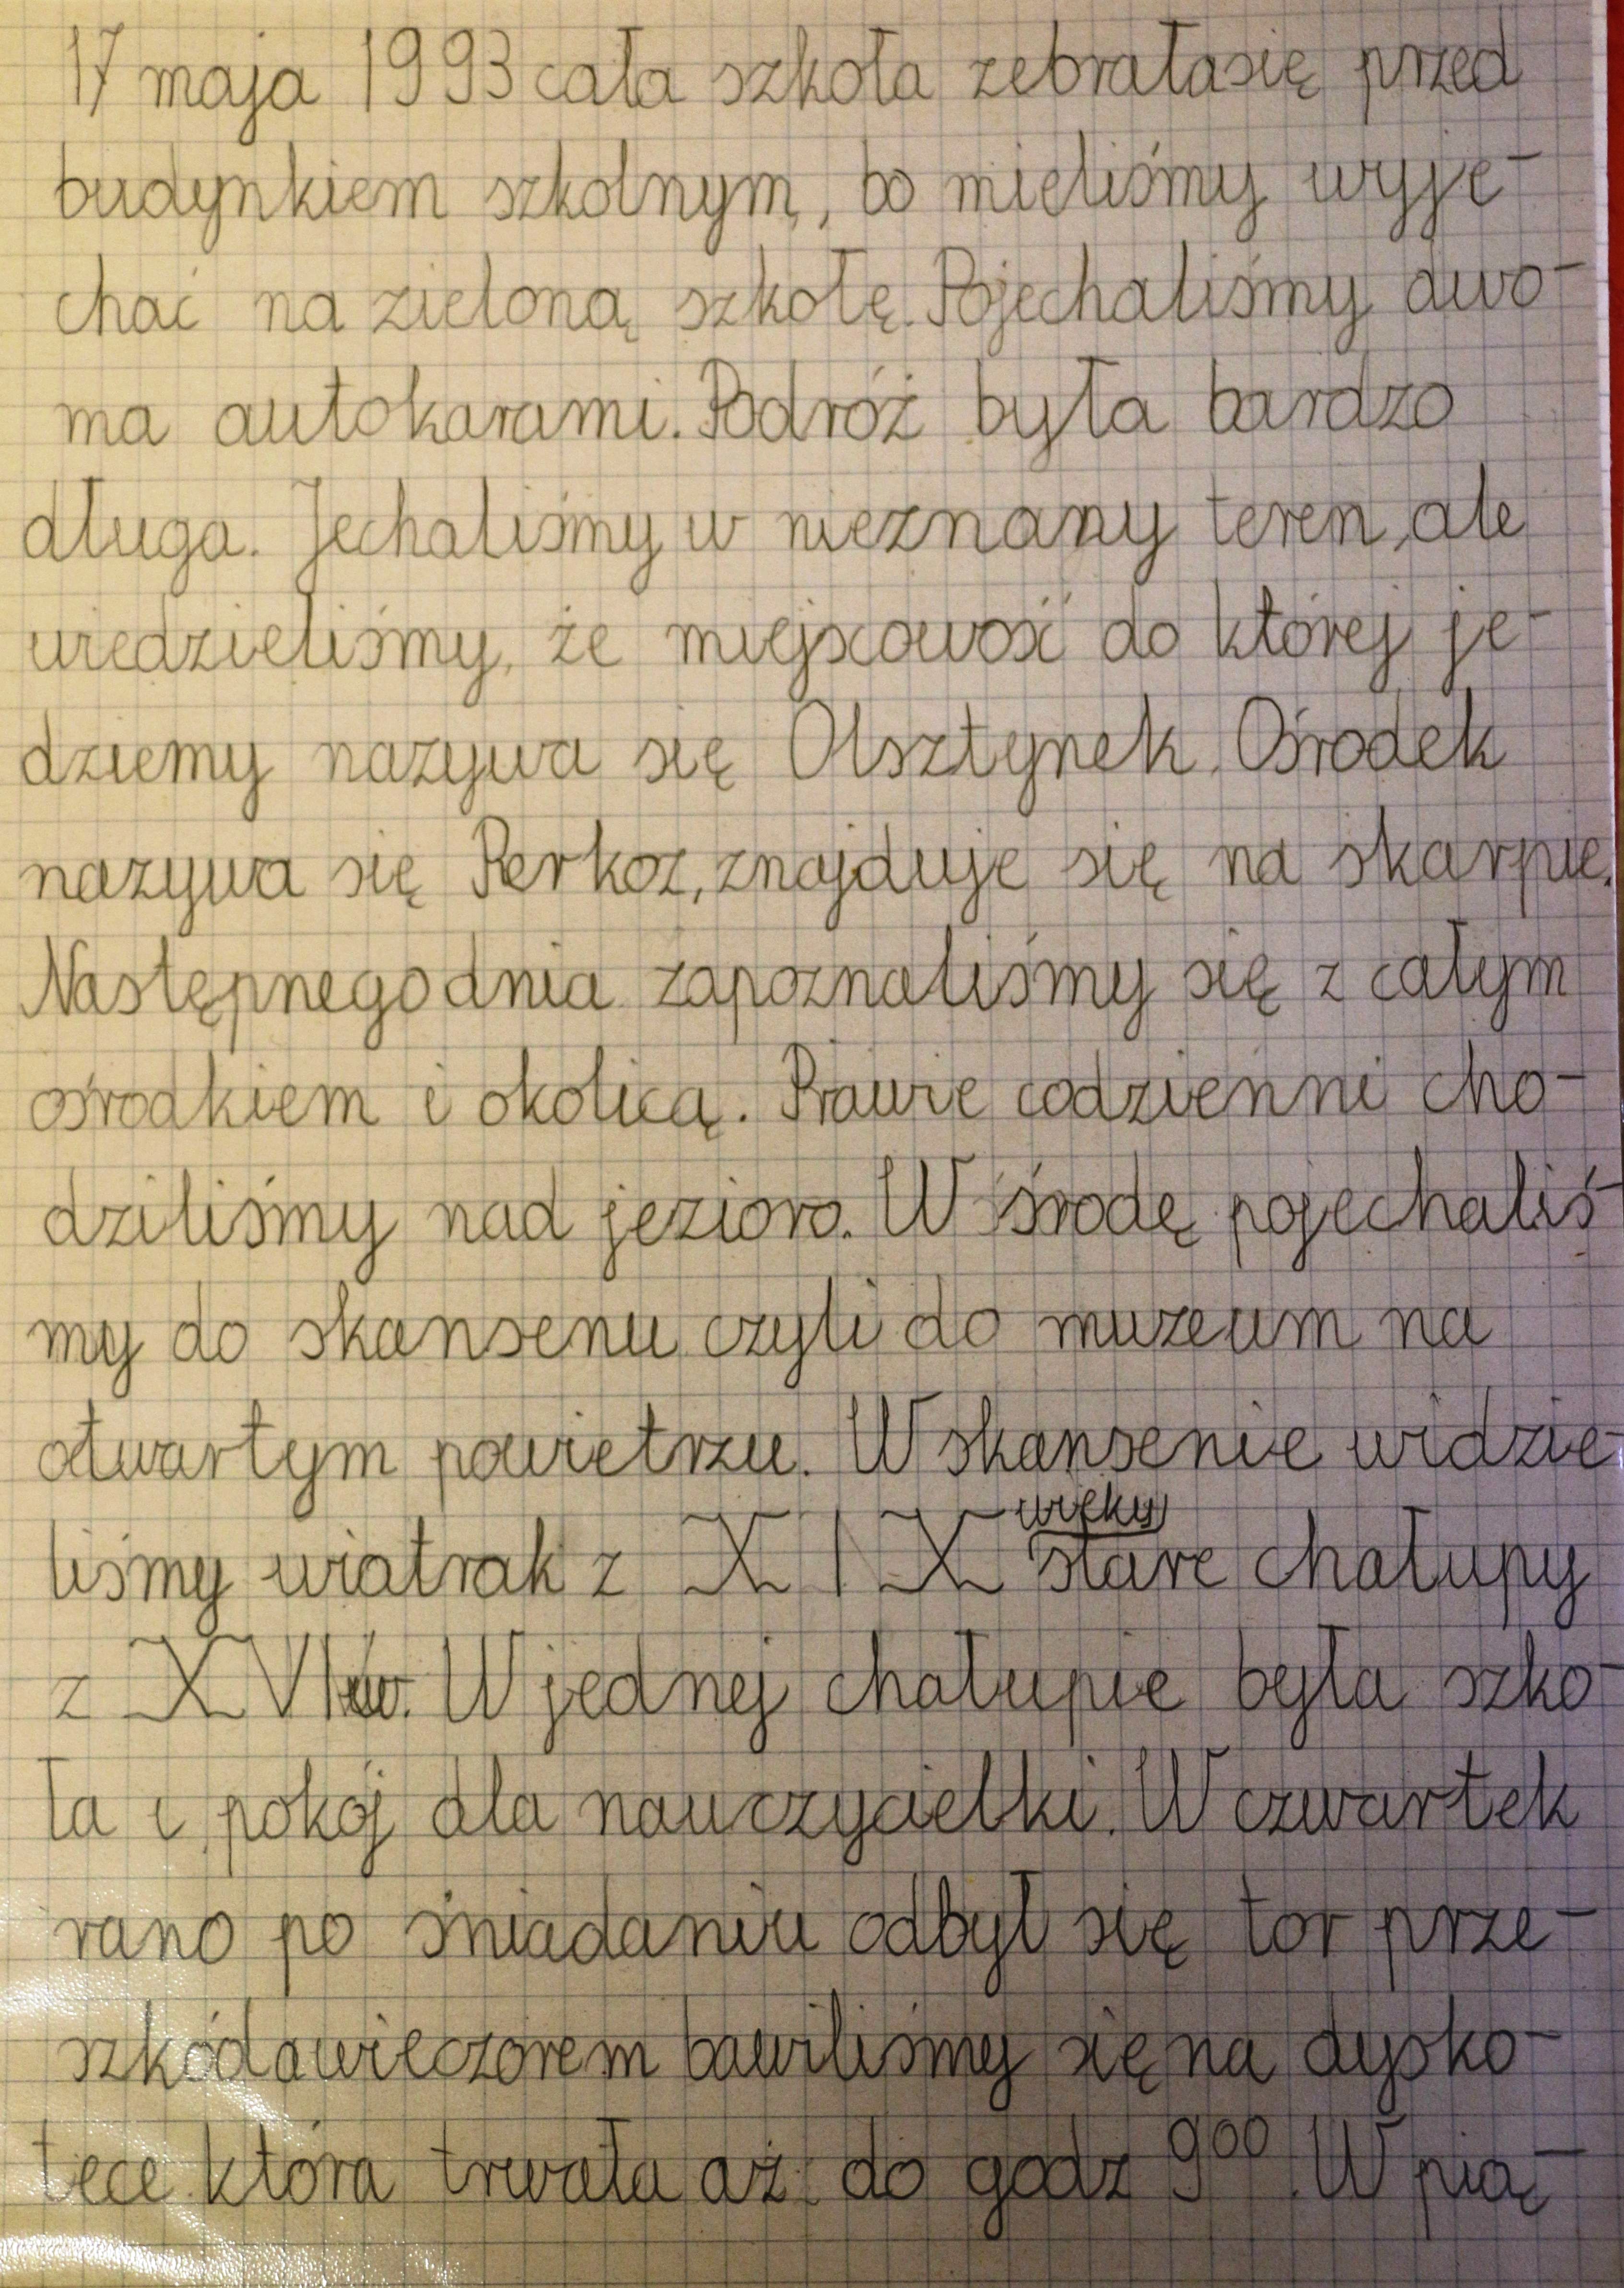 17 maja 1993 cała szkoła zebrałasię przed
budynkiem szkolnym, bo mieliśmy wyje-
chać na zieloną szkołę. Pojechaliśmy dwo-
ma autokarami. Podróż była bardzo
długa. Jechaliśmy w nieznany teren, ale
wiedzieliśmy, że miejscowość do której je-
dziemy nazywa się Olsztynek. Ośrodek
nazywa się Perkoz, znajduje się na skarpie.
Następnego dnia zapoznaliśmy się z całym
ośrodkiem i okolicą. Prawie codzienni cho-
dziliśmy nad jezioro. W środę pojechaliś-
my do skansenu czyli do muzeum na
otwartym powietrzu. W skansenie widzie-
liśmy wiatrak z XIX wieku stare chałupy
z XVI w. W jednej chałupie była szko-
ła i pokój dla nauczycielki. W czwartek
rano po śniadaniu odbył się tor prze-
szkód a wieczorem bawiliśmy się na dysko-
tece która trwała aż do godz 9⁰⁰. W pią-